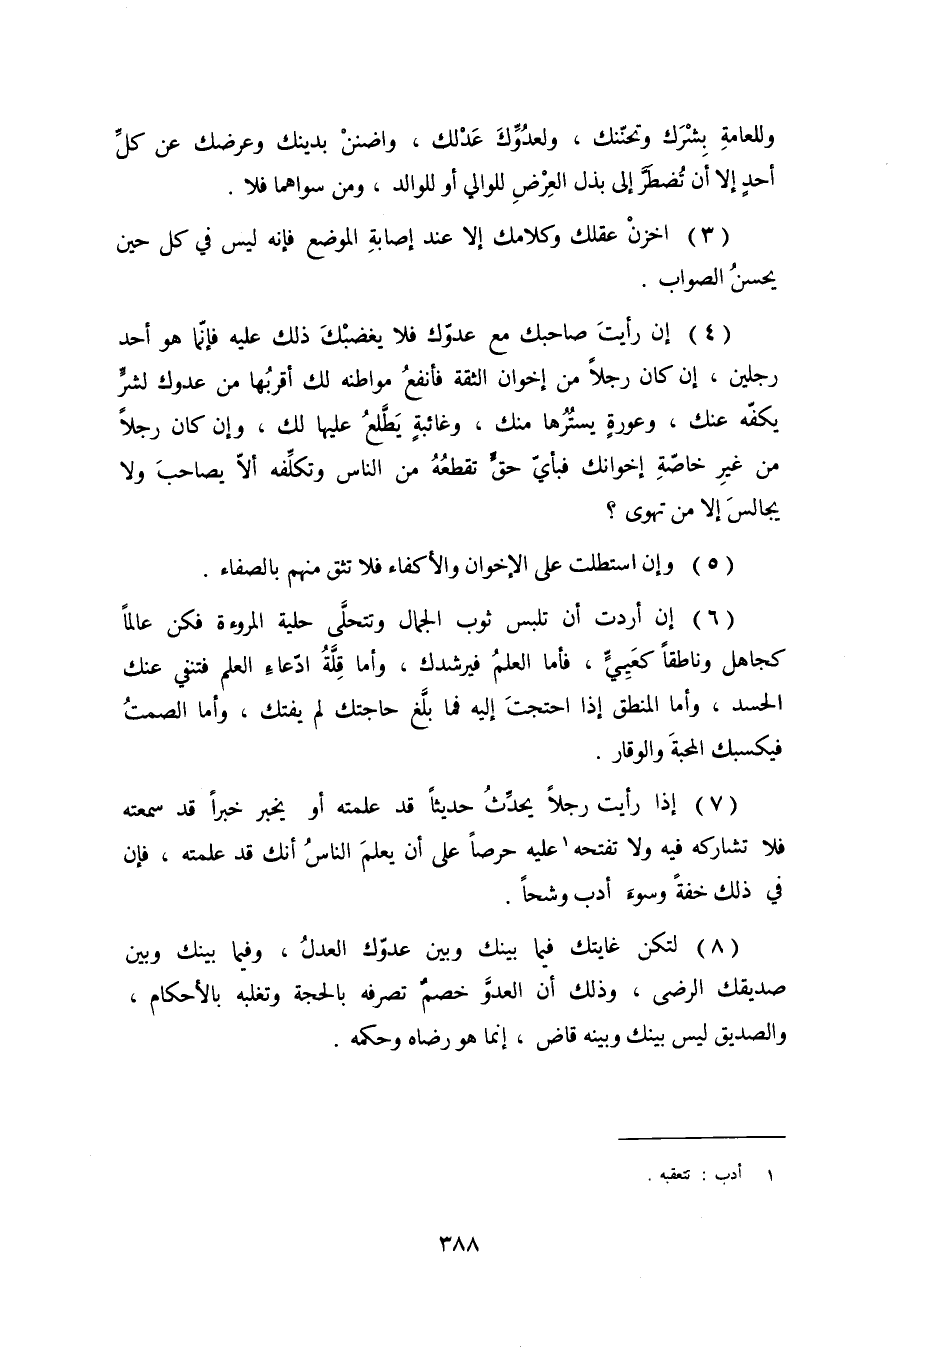 وللعامةِ بِشْرَك وتحنّنك ، ولعدُوِّكَ عَدْلك ، واضننْ بدينك وعرضك عن كلِّ
أحدٍ إلا أن تُضطَرَّ إلى بذل العِرْضِ للوالي أو للوالد ، ومن سواهما فلا .
(٣) اخزنْ عقلك وكلامك إلا عند إصابةِ الموضع فإنه ليس في كل حين
يحسنُ الصواب .
(٤) إن رأيتَ صاحبك مع عدوّك فلا يغضبْكَ ذلك عليه فإنّما هو أحد
رجلين ، إن كان رجلاً من إخوان الثقة فأنفعُ مواطنه لك أقربُها من عدوك لشرٍّ
يكفّه عنك ، وعورةٍ يستُرُها منك ، وغائبةٍ يَطَّلعُ عليها لك ، وإن كان رجلاً
من غيرِ خاصّةِ إخوانك فبأيّ حقٍّ تقطعُهُ من الناس وتكلِّفه ألاّ يصاحبَ ولا
يجالسَ إلا من تهوى ؟
(٥) وإن استطلت على الإخوان والأكفاء فلا تثق منهم بالصفاء .
(٦) إن أردت أن تلبس ثوب الجمال وتتحلَّى حلية المروءة فكن عالماً
كجاهل وناطقاً كعَيِيٍّ ، فأما العلمُ فيرشدك ، وأما قِلَّةُ ادّعاءِ العلم فتنفي عنك
الحسد ، وأما المنطق إذا احتجتَ إليه فما بلَّغ حاجتك لم يفتك ، وأما الصمتُ
فيكسبك المحبةَ والوقار .
(٧) إذا رأيت رجلاً يحدِّثُ حديثاً قد علمته أو يخبر خبراً قد سمعته
فلا تشاركه فيه ولا تفتحه١ عليه حرصاً على أن يعلمَ الناسُ أنك قد علمته ، فإن
في ذلك خفةً وسوءَ أدب وشحاً .
(٨) لتكن غايتك فيما بينك وبين عدوّك العدلُ ، وفيما بينك وبين
صديقك الرضى ، وذلك أن العدوَّ خصمٌ تصرفه بالحجة وتغلبه بالأحكام ،
والصديق ليس بينك وبينه قاض ، إنما هو رضاه وحكمه .
١ أدب : تتعقبه .
٣٨٨